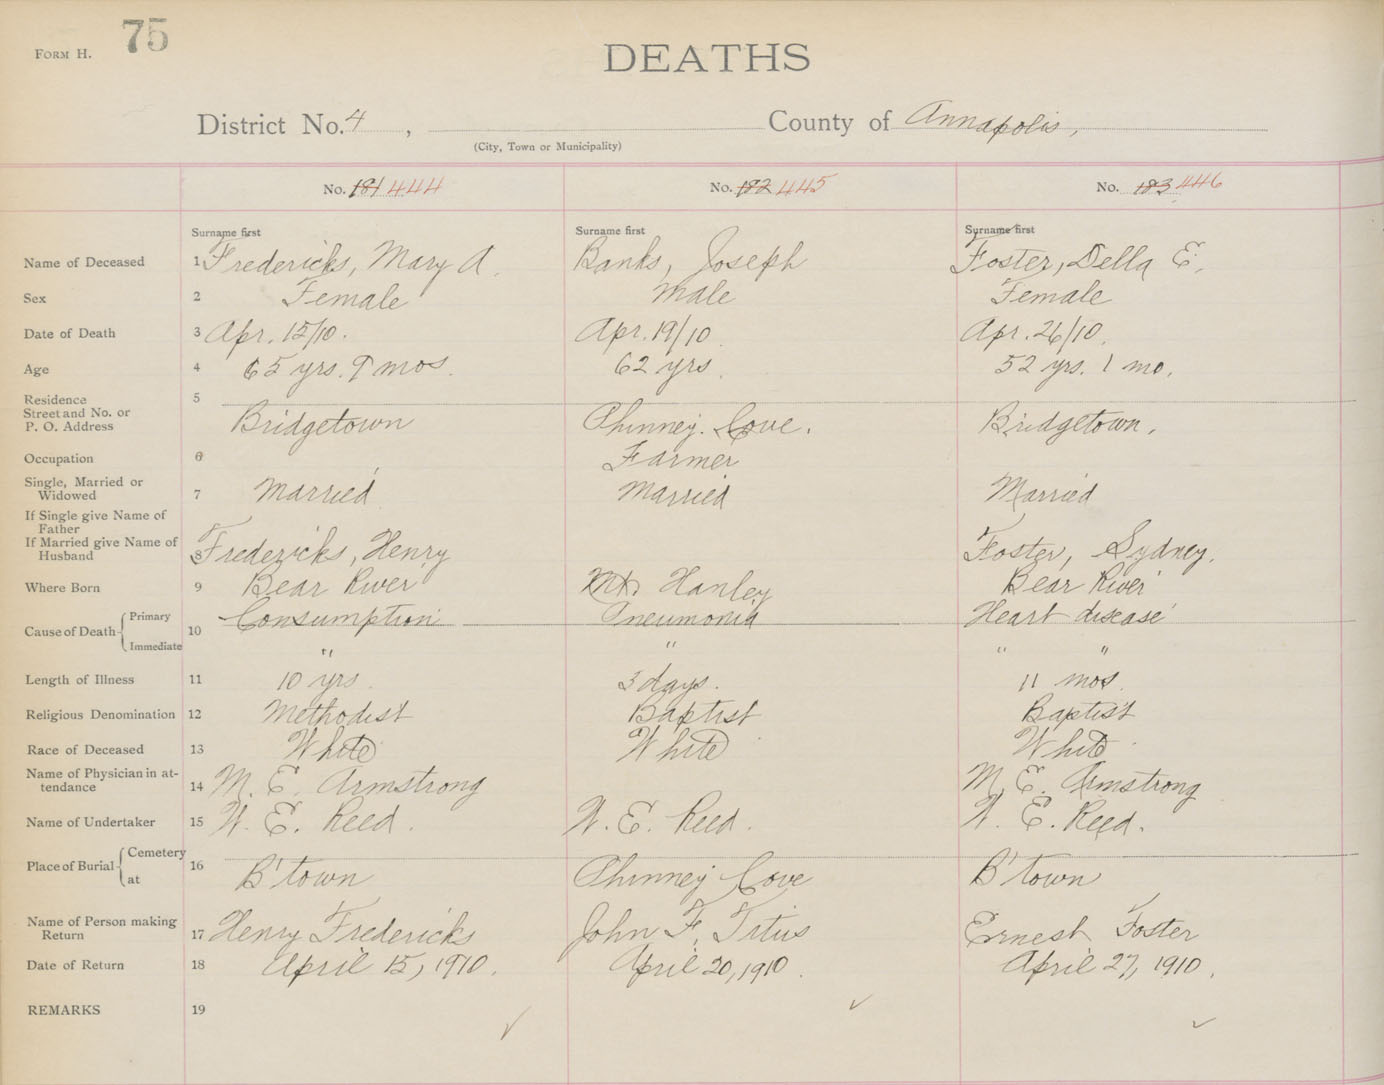 75
FORM H.
DEATHS
District No. 4 , County of Annapolis,
(City, Town or Municipality)
No. 181 444 No. 182 445 No. 183 446
Surname first Surname first Surname first
Name of Deceased 1 Fredericks, Mary A. Banks, Joseph Foster, Della E.
Sex 2 Female Male Female
Date of Death 3 Apr. 15/10. Apr. 19/10. Apr. 26/10.
Age 4 65 yrs. 9 mos. 62 yrs. 52 yrs. 1 mo.
Residence 5
Street and No. or
P. O. Address Bridgetown Phinney. Cove. Bridgetown.
Occupation 6 Farmer
Single, Married or
Widowed 7 Married Married Married
If Single give Name of
Father
If Married give Name of
Husband 8 Fredericks, Henry Foster, Sydney.
Where Born 9 Bear River Mt. Hanley Bear River
Cause of Death Primary 10 Consumption Pneumonia Heart disease
Immediate " " " "
Length of Illness 11 10 yrs. 3 days. 11 mos.
Religious Denomination 12 Methodist Baptist Baptist
Race of Deceased 13 White White White
Name of Physician in at-
tendance 14 M. E. Armstrong M. E. Armstrong
Name of Undertaker 15 W. E. Reed. W. E. Reed. W. E. Reed.
Place of Burial Cemetery 16
at B'town Phinney Cove B'town
Name of Person making
Return 17 Henry Fredericks John F. Titus Ernest Foster
Date of Return 18 April 15, 1910. April 20, 1910. April 27, 1910.
REMARKS 19